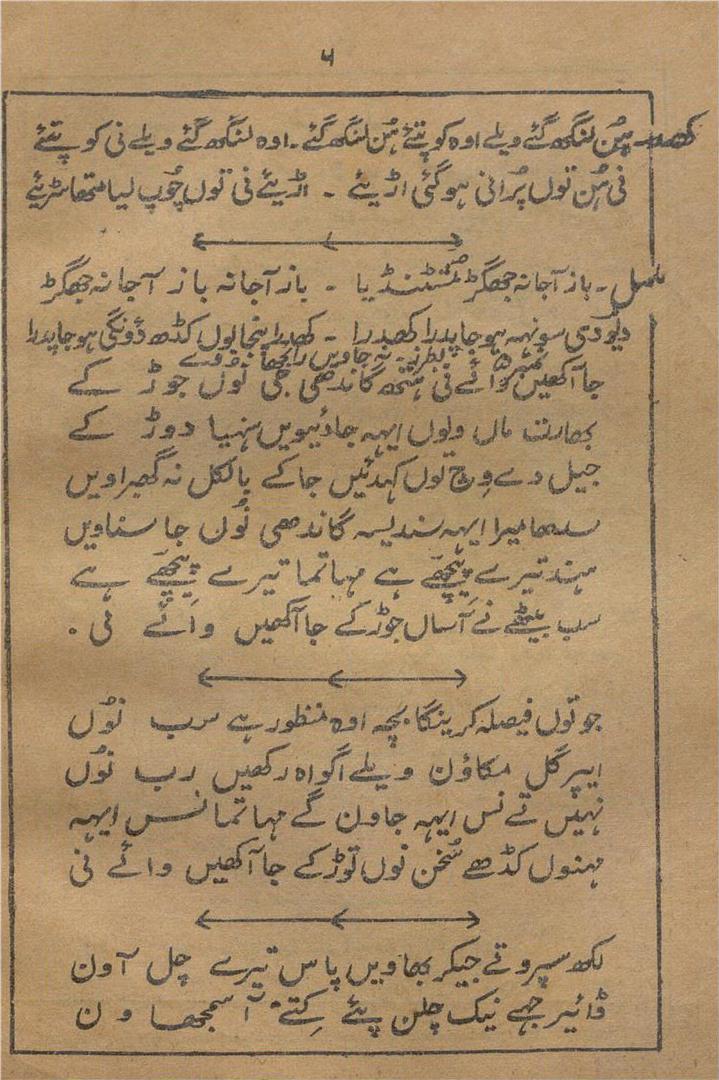 ۵
کھدر۔ ہُن لنگھ گئے ویلے اوہ کوپتئے ہُن لنگھ گئے۔ اوہ لنگھ گئے ویلے نی کوپتئے
نی ہُن توں پُرانی ہوگئی اڑیئے ۔ اڑیئے نی توں چُوپ لیا متھا سڑیئے
ململ۔ باز آجا نہ جھگڑ مُشٹنڈیا ۔ باز آجا نہ باز آجا نہ جھگڑ
دیؤدی سونہہ ہوجا پدرا کھدرا ۔ کھدرا پنجا نوں کڈھ ڈونگی ہوجا پدرا
نمبر ۵
جا آکھیں وائے نی ہتھ گاندھی جی نوں جوڑ کے
بھارت ماں ولوں ایہہ جا دئیویں سنہیا دوڑ کے
جیل دے وِچ توں کہدئیں جاکے بالکل نہ گھبراویں
سدھا میرا ایہہ سندیسہ گاندھی نُوں جا سناویں
ہند تیرے پِچھّے ہے مہاتما تیرے پِچھّے ہے
سب بیٹھے نے آساں جوڑ کے جا آکھیں وائے نی ۔
جو توں فیصلہ کرینگا بچہ اوہ منظور ہے سرب نُوں
ایپر گل مکاؤن ویلے اگواہ رکھیں رب نُوں
نہیں تے نس ایہہ جاون گے مہاتما نس ایہہ
مہنوں کڈھے سُخن نوں توڑ کے جا آکھیں وائے نی
لکھ سپرو تے جیکر بھاویں پاس تیرے چل آون
ڈائیر جہے نیک چلن پئے کِتے آ سمجھاون